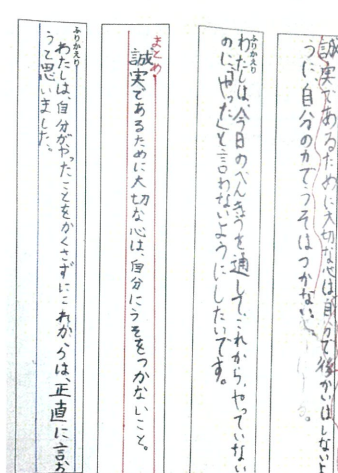 誠実であるために大切な心は、自分で後かいはしないよ
うに自分の力でうそはつかない。
ふりかえり
わたしは、今日のべんきょうを通して、これから、やっていない
のに、「やった」と言わないようにしたいです。
まとめ
誠実であるために大切な心は、自分にうそをつかないこと。
ふりかえり
わたしは、自分がやったことをかくさずにこれからは、正直に言お
うと思いました。